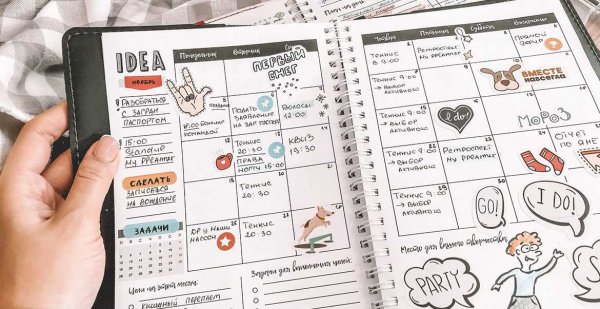 IDEA
НОЯБРЬ
РАЗОБРАТЬСЯ
С ЗАГРАН
ПАСПОРТОМ
15:00
MY PREAMER
СДЕЛАТЬ
ЗАПИСАТЬСЯ
НА ВОЖДЕНИЕ
ЗАДАЧИ
Понедельник
Вторник
ПЕРВЫЙ
СНЕГ
ПОДАТЬ
ЗАЯВЛЕНИЕ
НА ЗАГ ПАСПОРТ
ВОЛОСЫ
12:00
КОМАНДОЙ
ТЕННИС
20:30
ПРАВА
НОГТИ 15:00
КВИЗ
19:30
ТЕННИС
20:30
ДР У НАШИ
МАССОН
ТЕННИС
20:30
Цели на этот месяц:
КНИЖНЫЙ ПЕРЕПЛЕТ
Задачи для выполнения целей:
Четверг
Пятница
Суббота
Воскресенье
ТЕННИС
В 9:00
РЕТРОСПЕКТ
MY PREAMER
ПРЯМОЙ
ЭФИР
ТЕННИС 9:00
→ ВЫБОР
АКТИВНОГО
ВМЕСТЕ
НАВСЕГДА
ТЕННИС 9:00
→ ВЫБОР
АКТИВНОГО
I do!
МОРОЗ
ТЕННИС 9:00
→ ВЫБОР
АКТИВНОГО
РЕТРОСПЕКТ
MY PREAMER
ОТЧЕТ
ТЕННИС 9:00
→ ВЫБОР
АКТИВНОГО
GO!
I DO!
Место для вашего творчества
PARTY